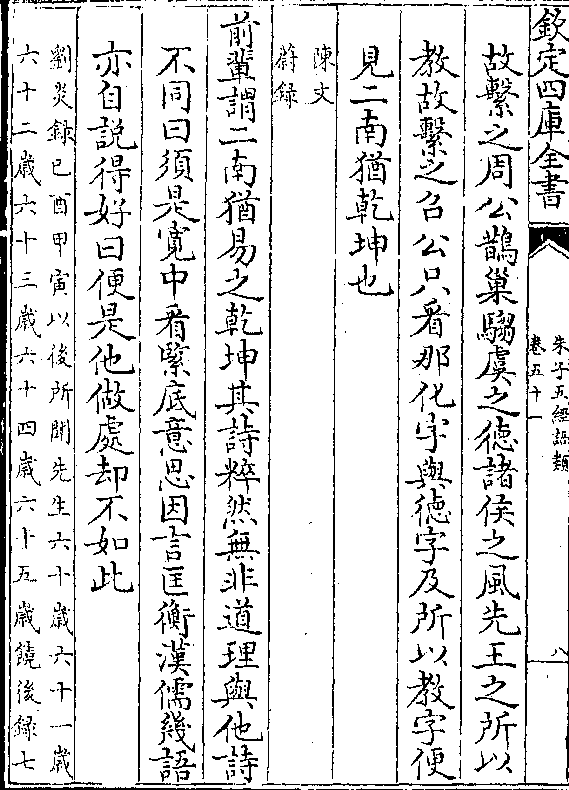 欽定四庫全書
朱子五經語類
卷五十一
八
故繫之周公鵲巢騶虞之德諸侯之風先王之所以
教故繫之召公只看那化字與德字及所以教字便
見二南猶乾坤也
陳文
蔚錄
前輩謂二南猶易之乾坤其詩粹然無非道理與他詩
不同曰須是寛中看緊底意思因言匡衡漢儒幾語
亦自説得好曰便是他做處却不如此
劉炎録已酉甲寅以後所聞先生六十歲六十一歲
六十二歲六十三歲六十四歲六十五歲饒後錄七